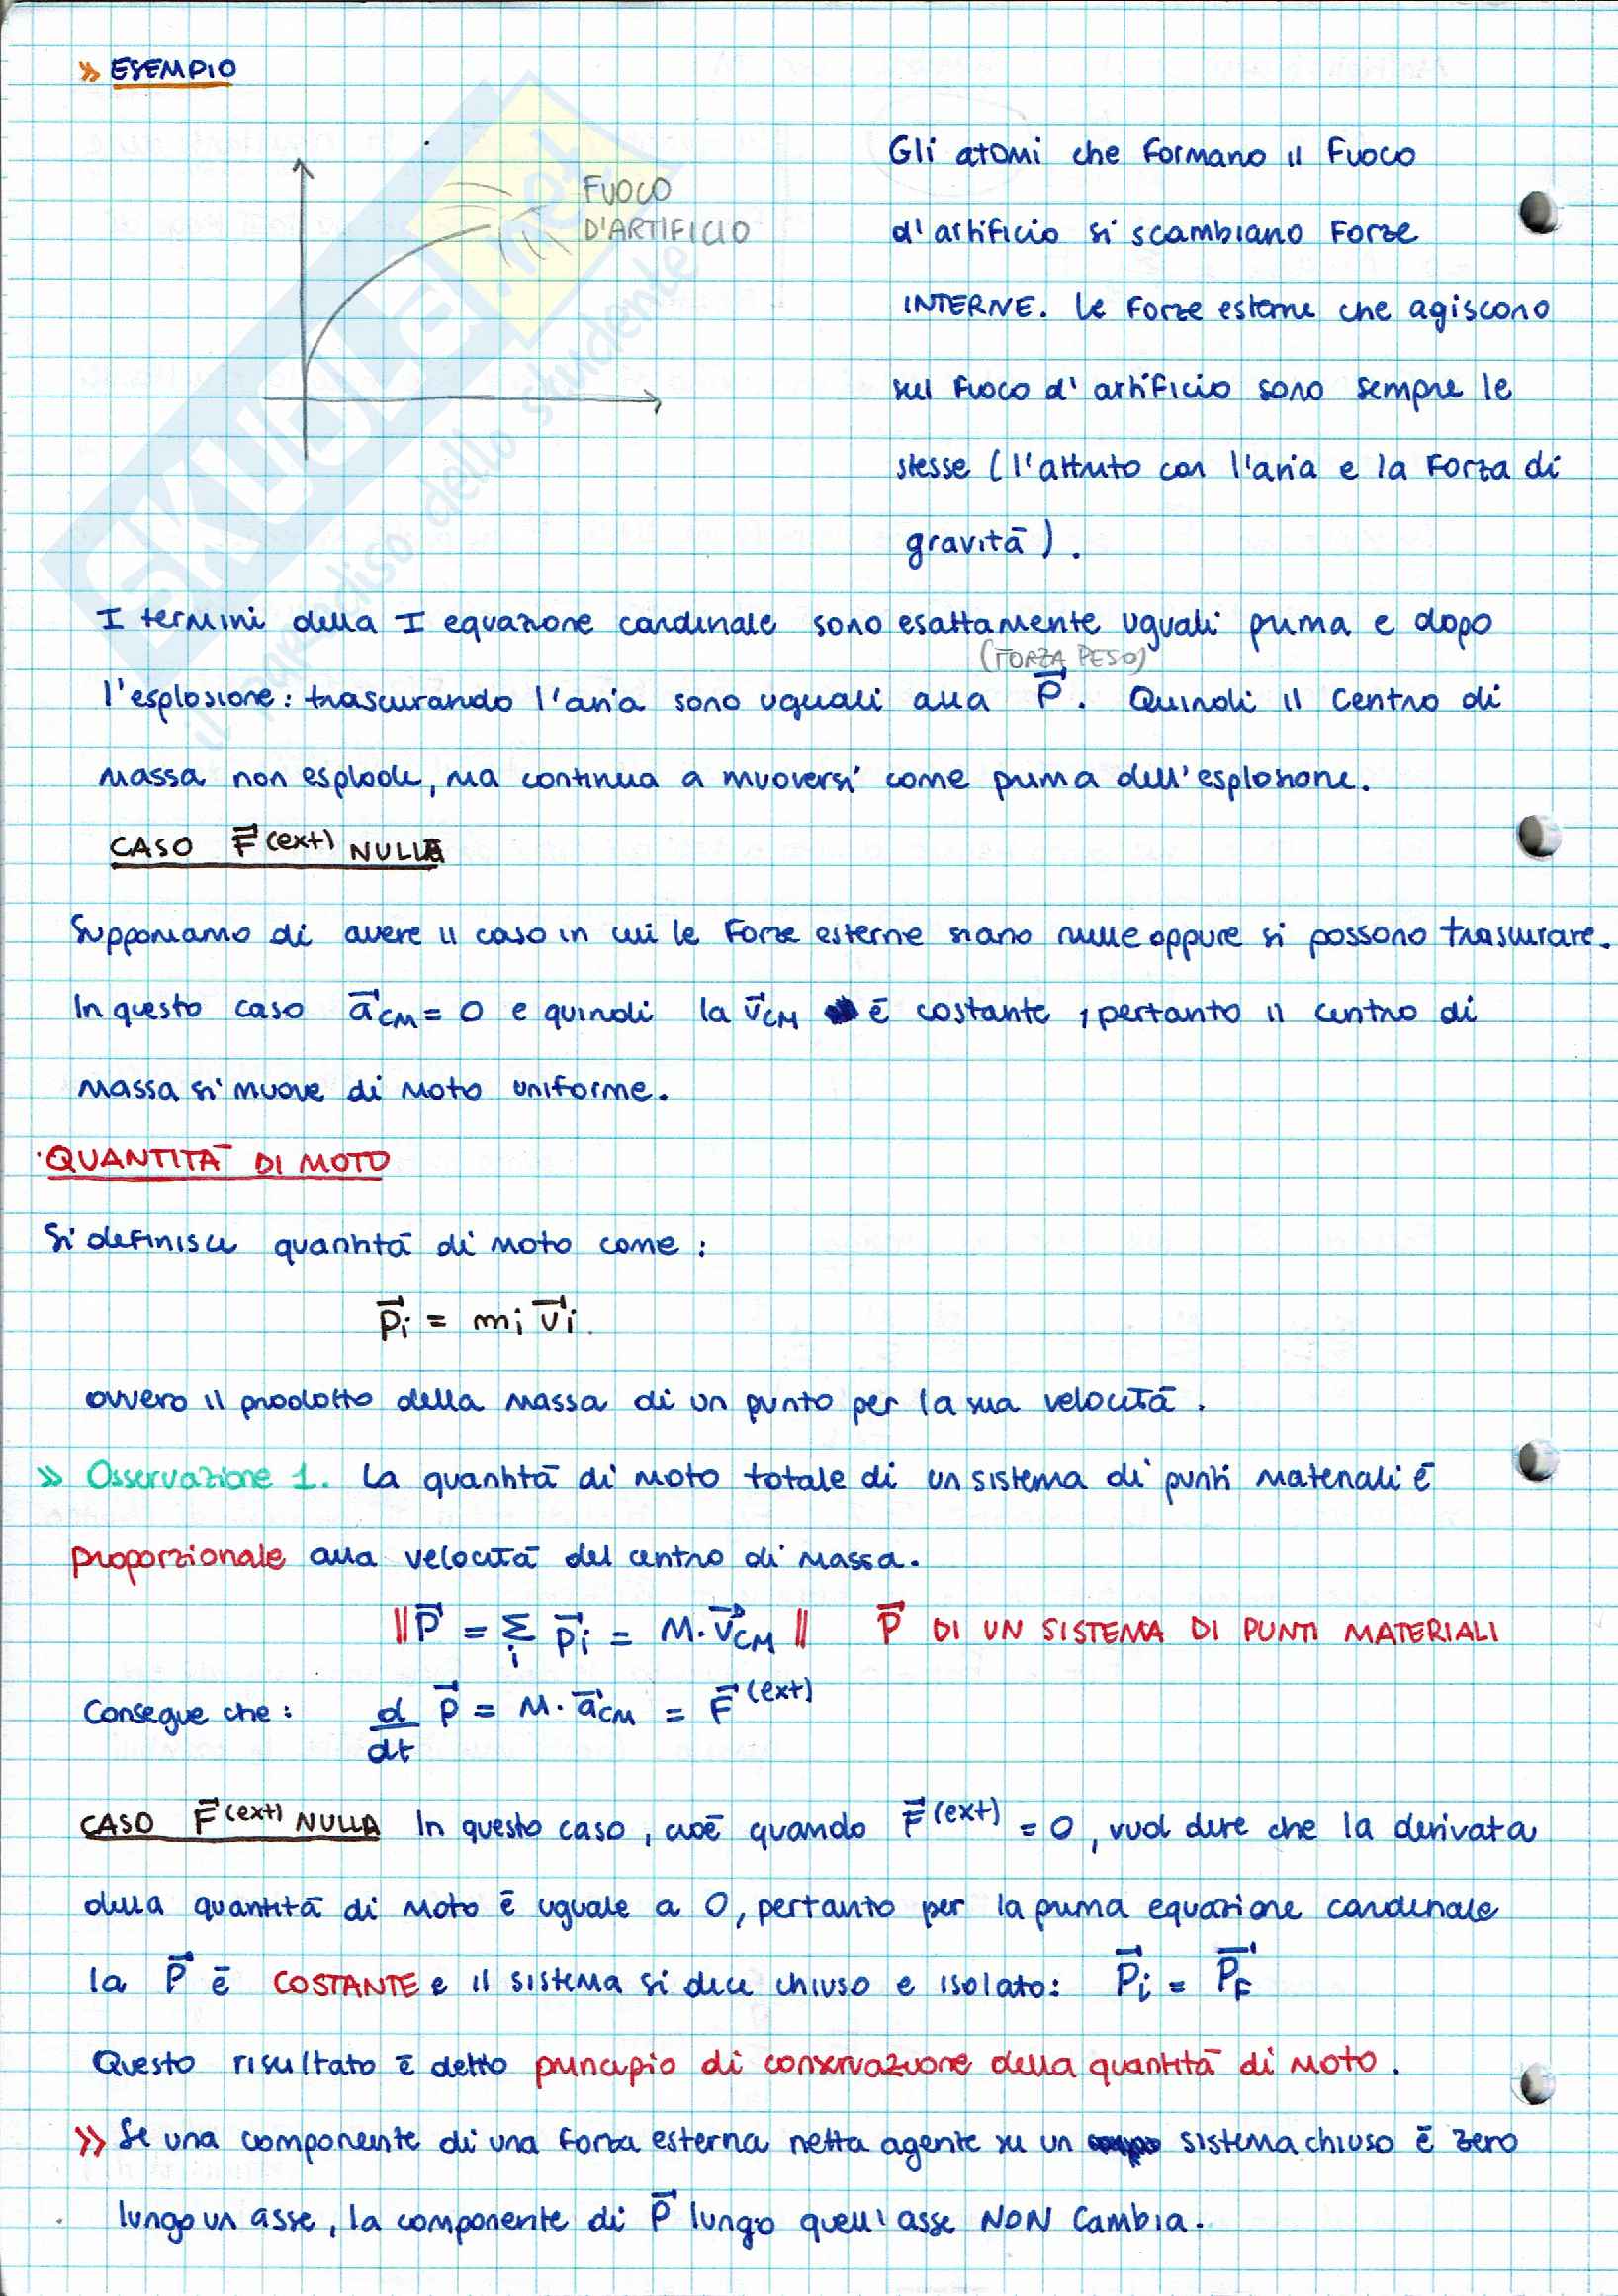 » ESEMPIO
FUOCO
D'ARTIFICIO
Gli atomi che formano il fuoco
d'artificio si scambiano forze
INTERNE. Le forze esterne che agiscono
sul fuoco d'artificio sono sempre le
stesse (l'attrito con l'aria e la forza di
gravità).
I termini della I equazione cardinale sono esattamente uguali prima e dopo
(FORZA PESO)
l'esplosione: trascurando l'aria sono uguali alla P⃗. Quindi il centro di
massa non esplode, ma continua a muoversi come prima dell'esplosione.
CASO F⃗(ext) NULLA
Supponiamo di avere il caso in cui le forze esterne siano nulle oppure si possono trascurare.
In questo caso a⃗CM = 0 e quindi la v⃗CM è costante, pertanto il centro di
massa si muove di moto uniforme.
·QUANTITÀ DI MOTO
Si definisce quantità di moto come:
p⃗i = mi v⃗i.
ovvero il prodotto della massa di un punto per la sua velocità.
» Osservazione 1. La quantità di moto totale di un sistema di punti materiali è
proporzionale alla velocità del centro di massa.
||P⃗ = Σi p⃗i = M·v⃗CM|| P⃗ DI UN SISTEMA DI PUNTI MATERIALI
Consegue che: d/dt P⃗ = M·a⃗CM = F⃗(ext)
CASO F⃗(ext) NULLA In questo caso, cioè quando F⃗(ext) = 0, vuol dire che la derivata
della quantità di moto è uguale a 0, pertanto per la prima equazione cardinale
la P⃗ è COSTANTE e il sistema si dice chiuso e isolato: P⃗i = P⃗F
Questo risultato è detto principio di conservazione della quantità di moto.
» Se una componente di una forza esterna netta agente su un sistema chiuso è zero
lungo un asse, la componente di P⃗ lungo quell'asse NON cambia.
SKUOLA.net
il paradiso dello studente